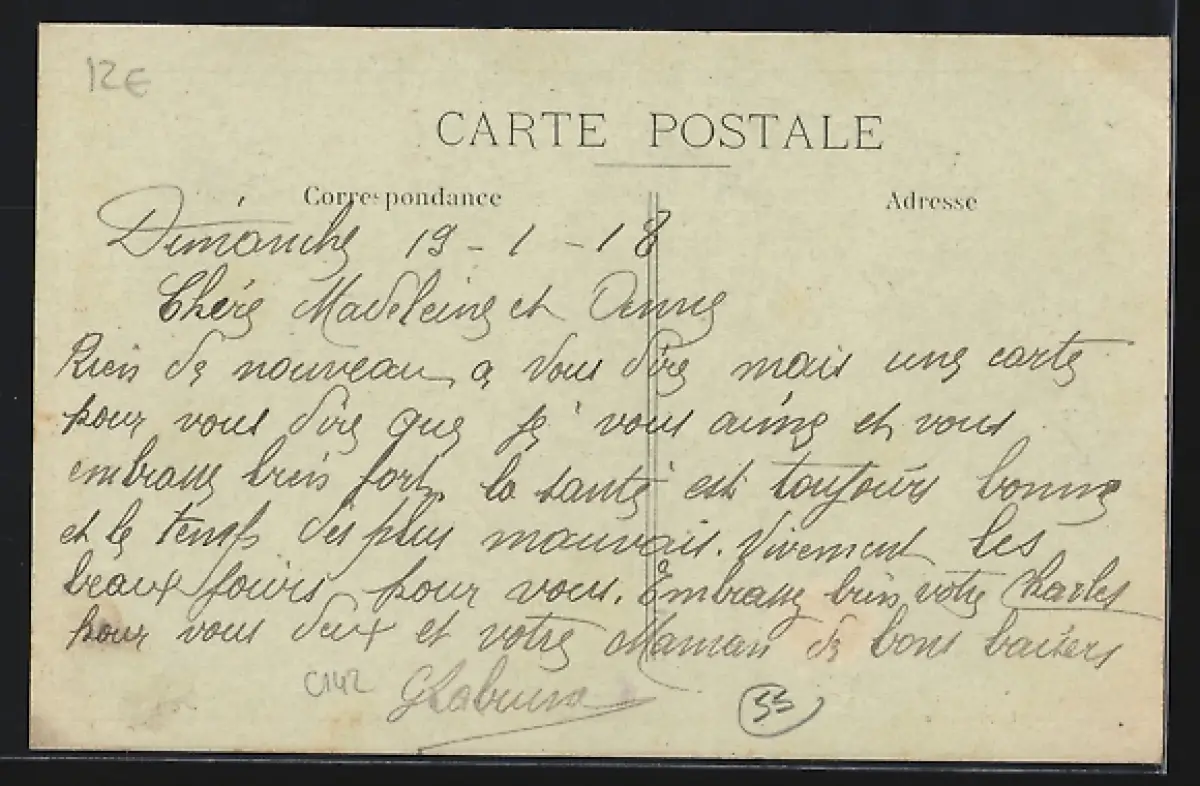 12€
CARTE POSTALE
Correspondance
Adresse
Dimanche 19-1-18
Chére Madeleine et
Rien de nouveau a vous dire mais une carte
pour vous dire que je vous aime et vous
embrasse bien fort. la santé est toujours bonne
et le temps des plus mauvais. Vivement les
beaux jours pour vous. Embrasse bien votre Charles
pour vous deux et votre Maman de bons baisers
C142
33